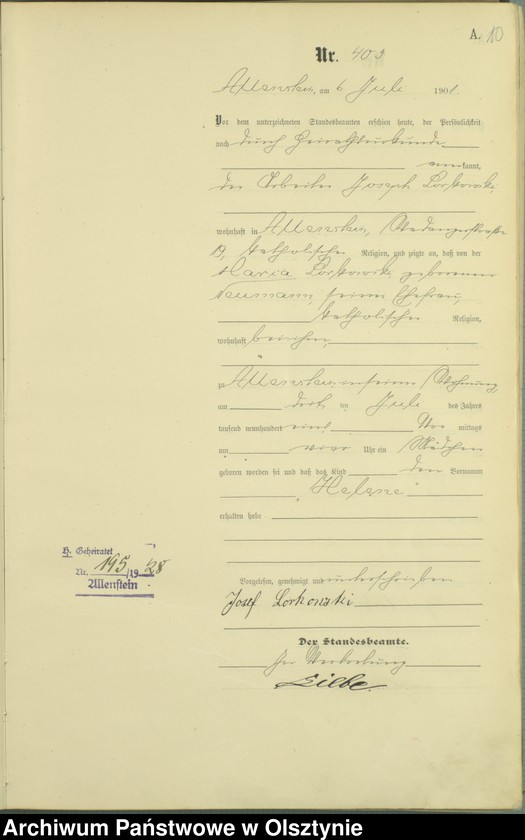 A. 10
Nr. 403
Allenstein, am 6. Juli 1901.
Vor dem unterzeichneten Standesbeamten erschien heute, der Persönlichkeit
nach durch Heiratsurkunde
kannt,
der Arbeiter Joseph Lorkowski,
wohnhaft in Allenstein,
19, katholischer Religion, und zeigte an, daß von der
Maria Lorkowski, geborenen
Neumann, seiner Ehefrau,
katholischer Religion,
wohnhaft bei ihm,
zu Allenstein in seiner Wohnung,
am Juli des Jahres
tausend neunhundert eins Vor mittags
um vier Uhr ein Mädchen
geboren worden sei und daß das Kind den Vornamen
"Helene"
erhalten habe
H. Geheiratet
Nr. 195/1928
Allenstein
Vorgelesen, genehmigt und unterschrieben
Josef Lorkowski
Der Standesbeamte.
In Vertretung
Archiwum Państwowe w Olsztynie